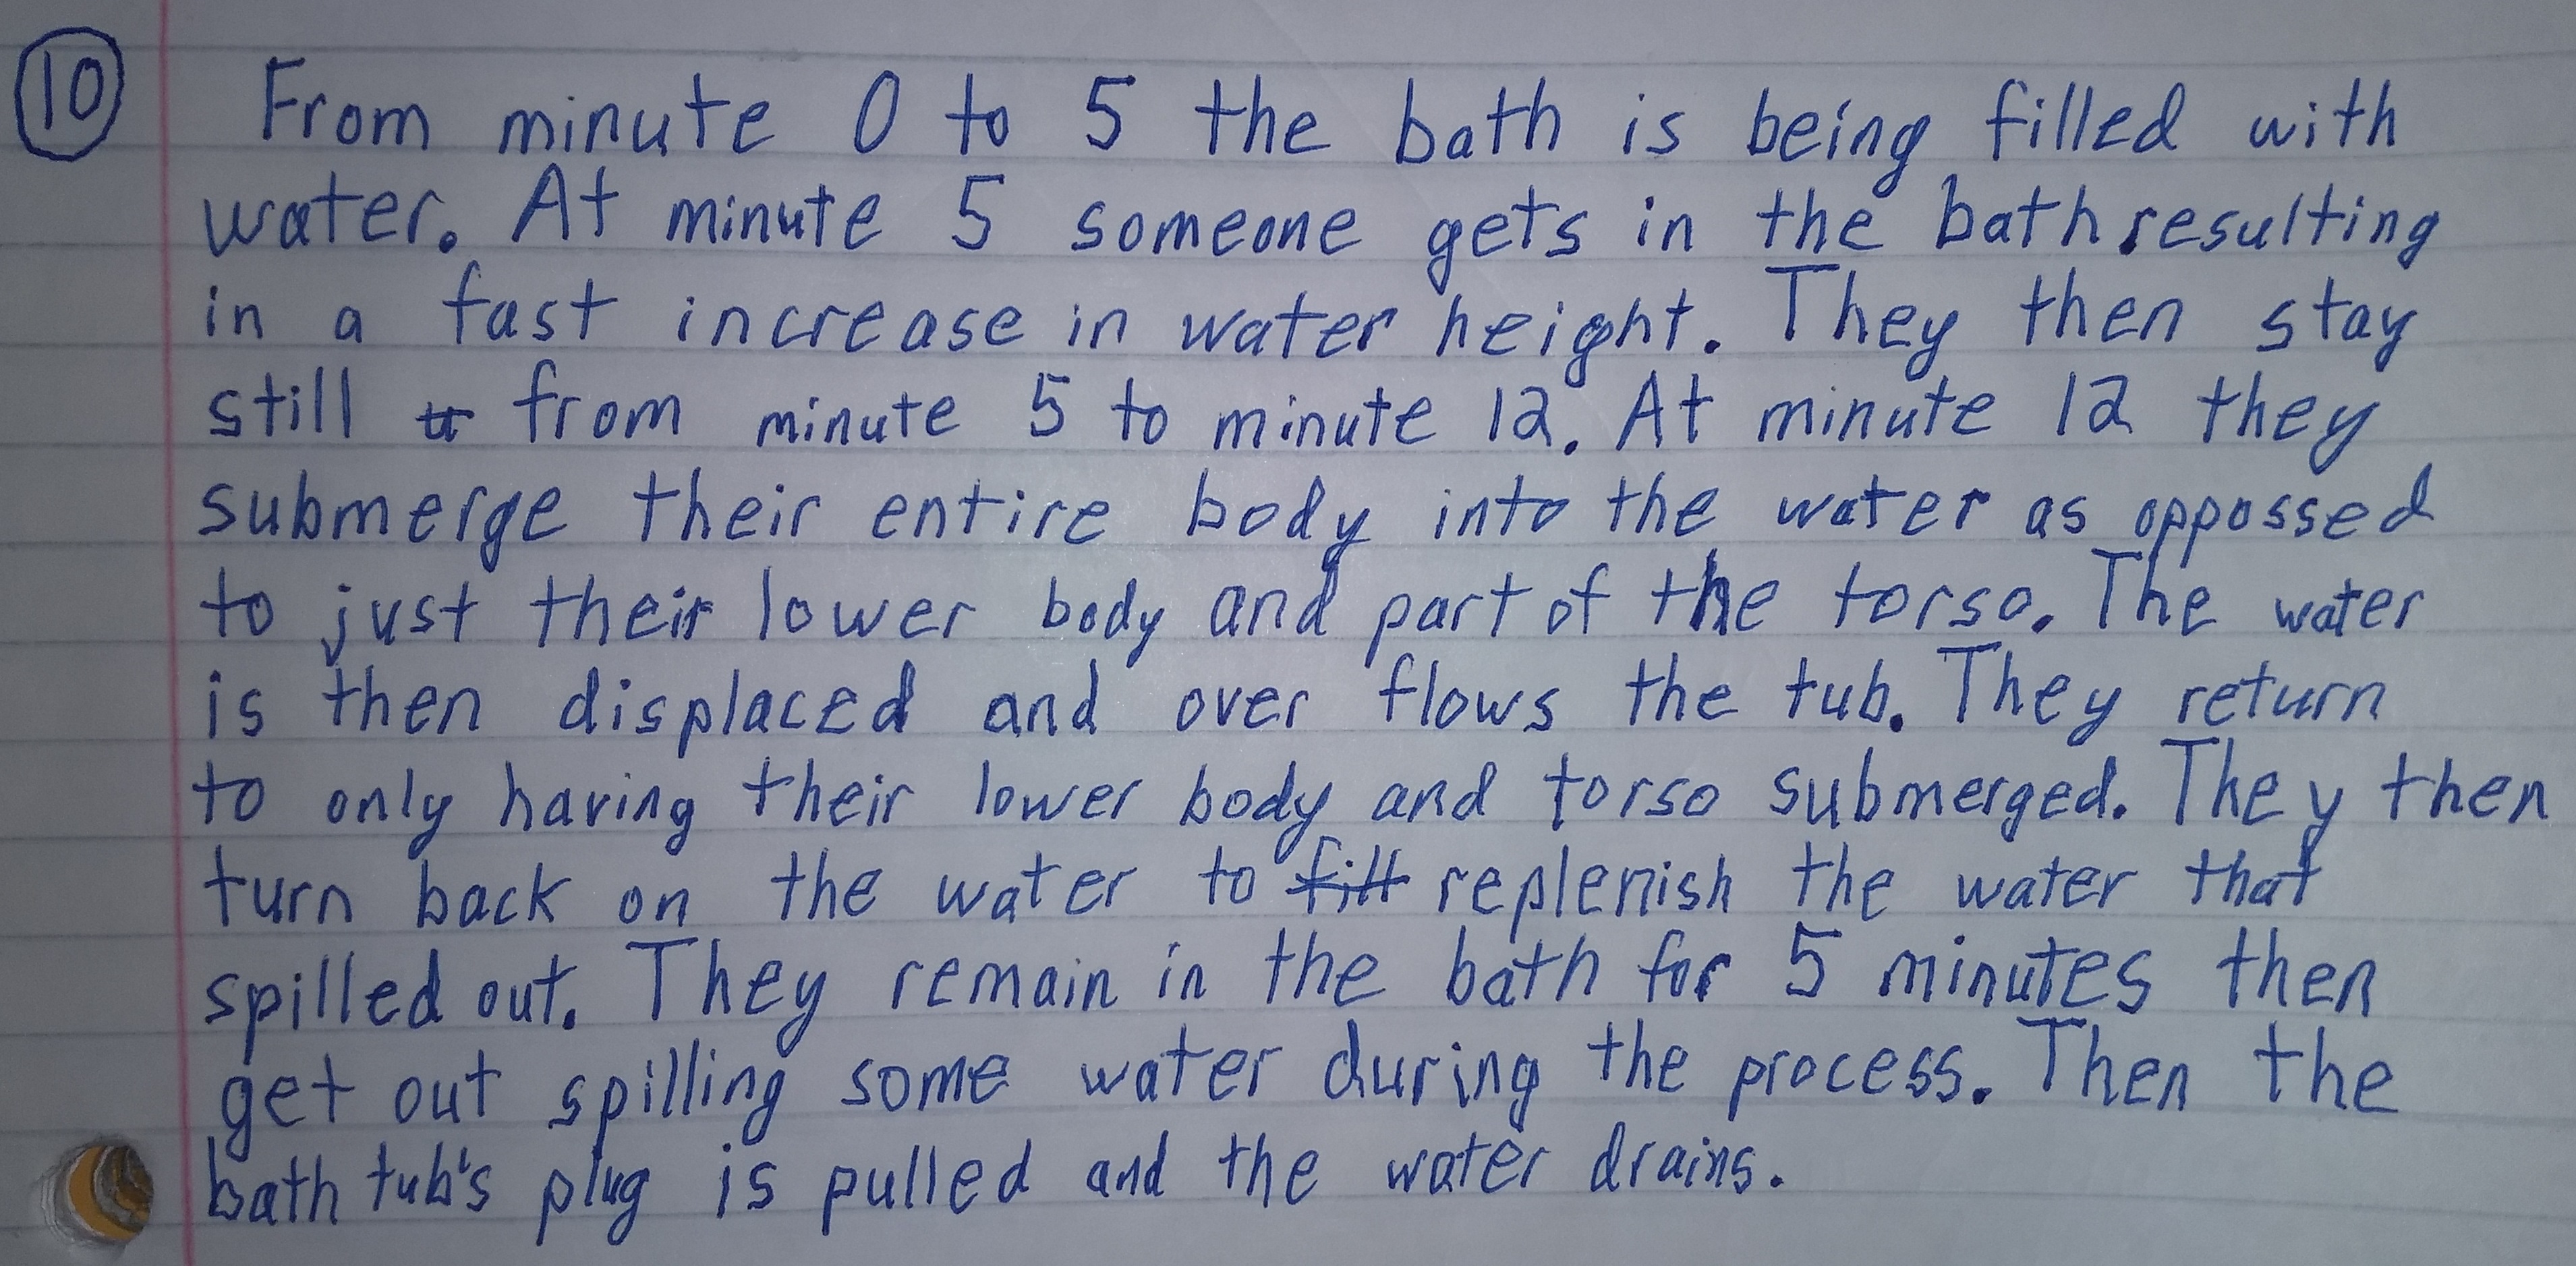 10 From minute 0 to 5 the bath is being filled with
water. At minute 5 someone gets in the bath resulting
in a fast increase in water height. They then stay
still from minute 5 to minute 12. At minute 12 they
submerge their entire body into the water as oppossed
to just their lower body and part of the torso. The water
is then displaced and over flows the tub. They return
to only having their lower body and torso submerged. They then
turn back on the water to fill replenish the water that
spilled out. They remain in the bath for 5 minutes then
get out spilling some water during the process. Then the
bath tub's plug is pulled and the water drains.